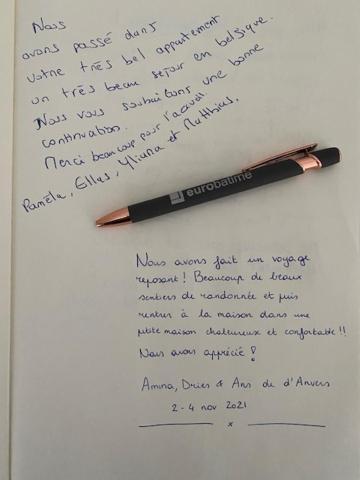 Nous
avons passé dans
votre très bel appartement
un très beau sejour en belgique.
Nous vous souhaitons une bonne
continuation.
Merci beaucoup pour l'accueil.
Paméla, Ellas, Yliana et Matthius.
eurobatime
Nous avons fait un voyage
reposant! Beaucoup de beaux
sentiers de randonnée et puis
rentrer à la maison dans une
petite maison chaleureux et confortable!!
Nous avons apprécié!
Amina, Dries & Ans de d'Anvers
2-4 nov 2021
x